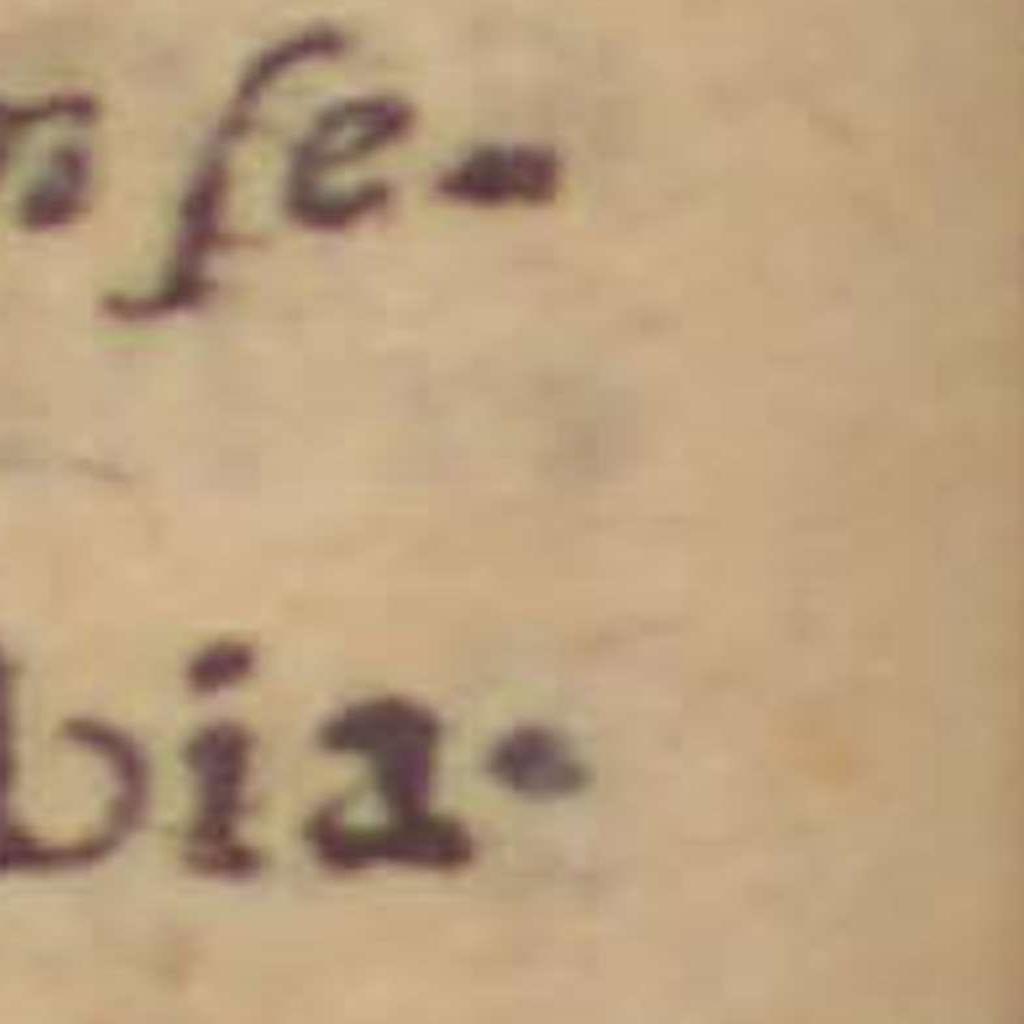 ſe-
bia.